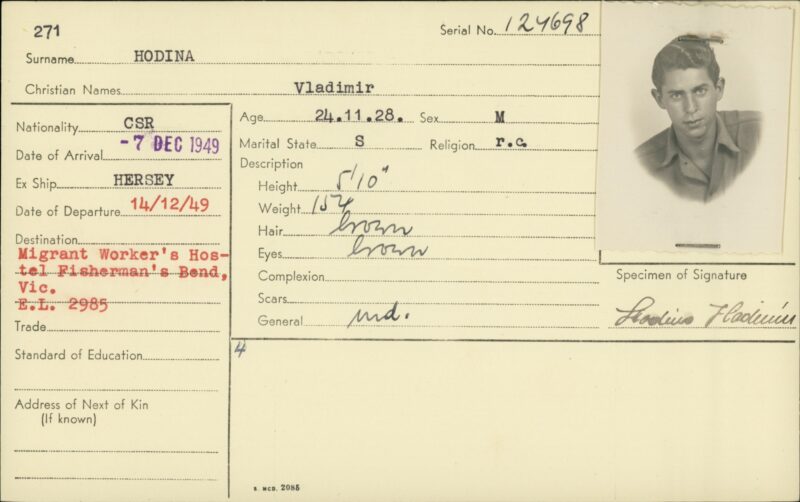 271
Serial No. 124698
Surname HODINA
Christian Names Vladimir
Nationality CSR
Date of Arrival -7 DEC 1949
Ex Ship HERSEY
Date of Departure 14/12/49
Destination
Migrant Worker's Hos-
tel Fisherman's Bend,
Vic.
E.L. 2985
Trade
Standard of Education
Address of Next of Kin
(If known)
Age 24.11.28. Sex M
Marital State S Religion r.c.
Description
Height 5'10"
Weight 154
Hair brown
Eyes brown
Complexion
Scars
General md.
4
Specimen of Signature
Hodina Vladimir
S. MCD. 2085